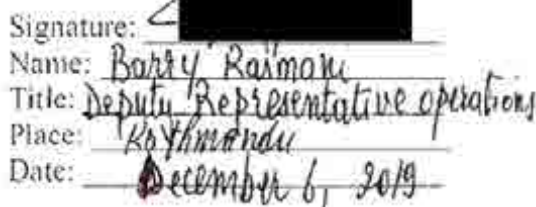 Signature:
Name: Barry Raimoni
Title: Deputy Representative operations
Place: Kathmandu
Date: December 6, 2019